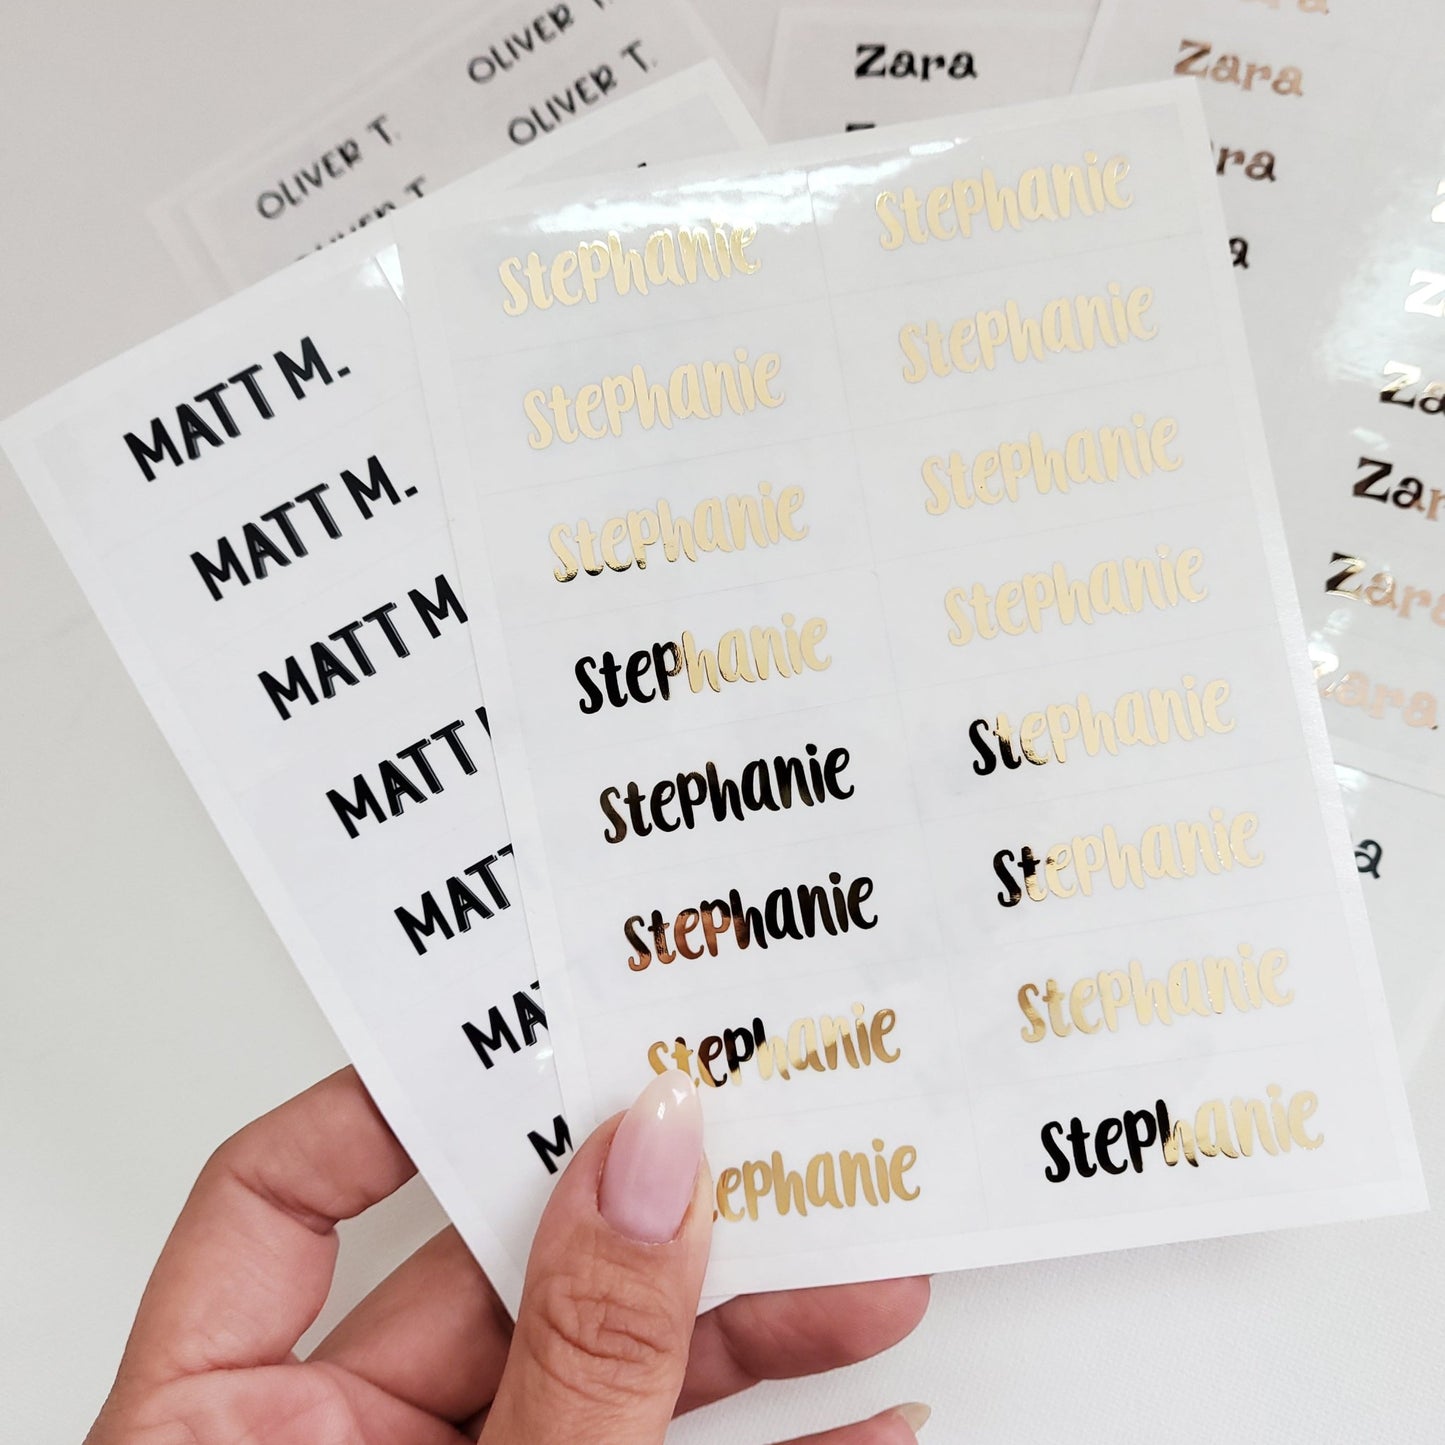 OLIVER T.
OLIVER T.
OLIVER T.
Zara
Zara
MATT M.
MATT M.
MATT M
MATT
MATT
MAT
MA
M
Stephanie Stephanie
Stephanie Stephanie
Stephanie Stephanie
Stephanie Stephanie
Stephanie Stephanie
Stephanie Stephanie
Stephanie Stephanie
tephanie Stephanie
ra
a
Za
Zar
Zara
Zara
a